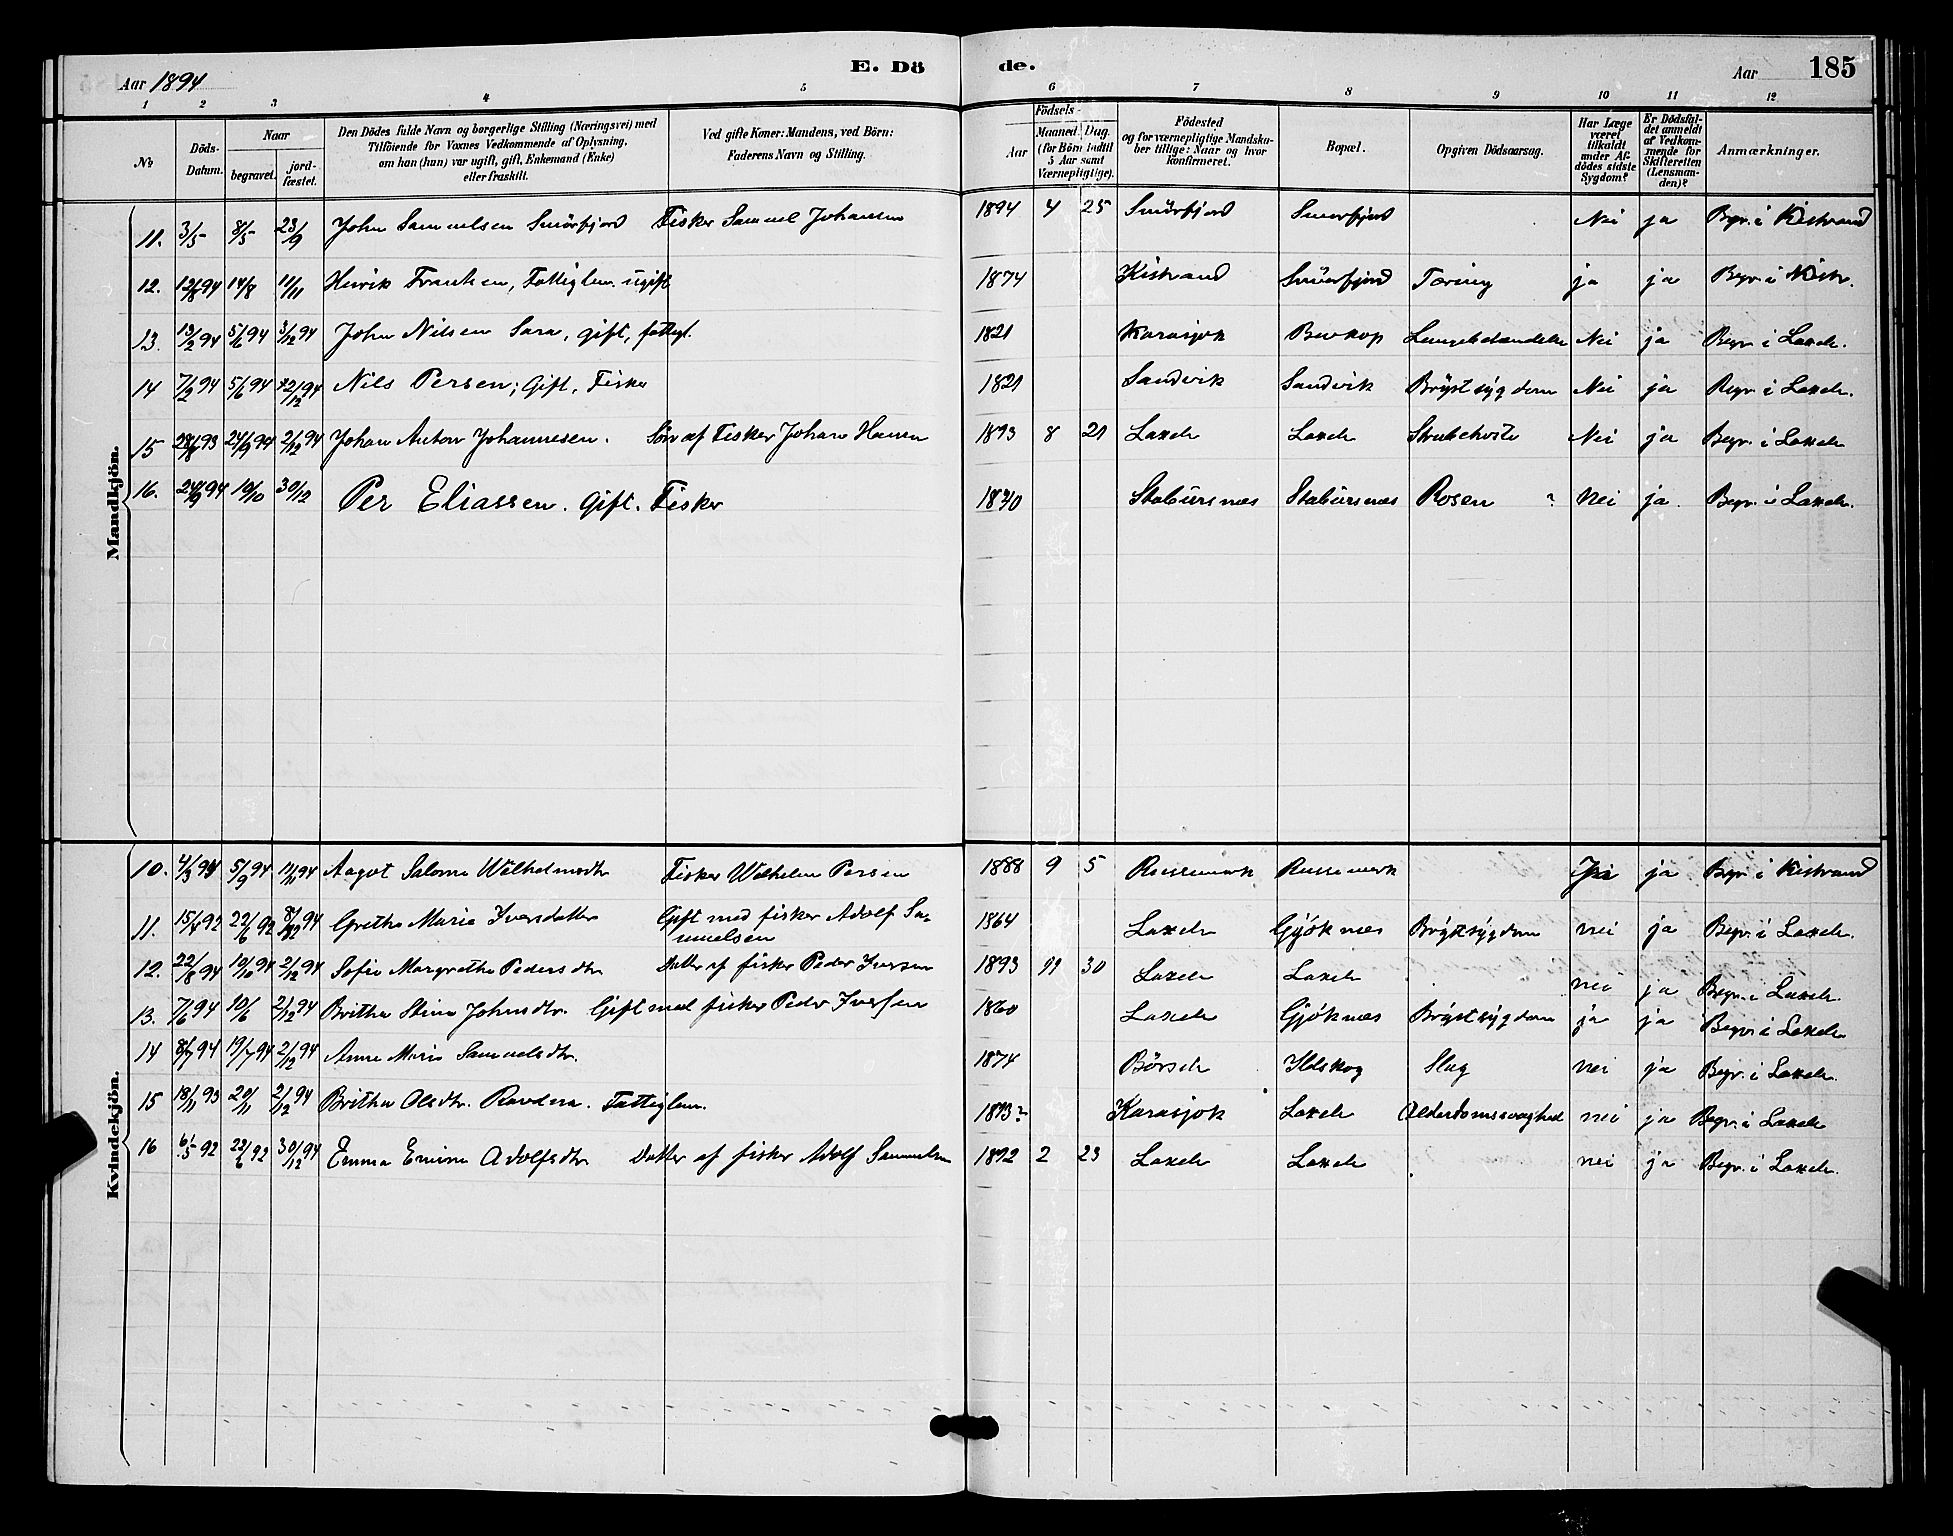 Aar 1894 E. Dö de. Aar 185
1 2 3 4 5 6 7 8 9 10 11 12
No
Döds-Datum.
Naar
begravet. jordfæstet.
Den Dödes fulde Navn og borgerlige Stilling (Næringsvei) med
Tilföiende for Voxnes Vedkommende af Oplysning,
om han (hun) var ugift, gift, Enkemand (Enke)
eller fraskilt.
Ved gifte Koner: Mandens, ved Börn:
Faderens Navn og Stilling.
Födsels-
Aar Maaned. Dag.
(for Börn indtil
5 Aar samt
Værnepligtige).
Födested
og for værnepligtige Mandskaber
tillige: Naar og hvor
konfirmeret.
Bopæl.
Opgiven Dödsaarsag.
Har Læge
været
tilkaldt
under Afdödes
sidste
Sygdom?
Er Dödsfaldet
anmeldt
af Vedkommende
for
Skifteretten
(Lensmanden)?
Anmærkninger.
Mandkjön.
11. 3/5 8/5 23/9 John Samuelsen Smörfjord Fisker Samuel Johansen 1894 4 25 Smörfjord Smørfjord Nei ja Begr. i Kistrand
12. 12/8 94 14/8 11/11 Henrik Frantsen, Fattiglem. ugift 1874 Kistrand Smörfjord Tæring ja ja Begr. i Kistr.
13. 13/2 94 5/6 94 3/12 94 John Nilsen Sara, gift, fattigl. 1821 Karasjok Bevkop Lungebetændelse Nei ja Begr. i Laxelv.
14 7/2 94 5/6 94 22/12 94 Nils Persen, Gift, Fisker 1821 Sandvik Sandvik Brÿstsÿgdom Nei ja Begr. i Laxelv.
15 28/8 93 24/9 94 2/12 94 Johan Anton Johannesen. Sön af Fisker Johan Hansen 1893 8 21 Laxelv Laxelv Strubehoste Nei ja Begr. i Laxelv
16. 24/9 94 10/10 30/12 Per Eliassen. Gift. Fisker 1830 Stabursnæs Stabursnæs Rosen ? Nei ja. Begr. i Laxelv.
Kvindekjön.
10. 4/3 94 5/9 94 11/11 94 Aagot Salome Wilhelmsdtr Fisker Wilhelm Persen 1888 9 5 Russemark Russemark Ja ja Begr. i Kistrand
11. 15/4 92 22/6 92 8/12 94 Grethe Marie Iversdatter Gift med fisker Adolf Sa-
muelsen 1864 Laxelv Gjöknæs Brÿstsÿgdom nei ja Begr. i Laxelv.
12. 22/8 94 10/10 94 2/12 94 Sofie Margrethe Pedersdtr Datter af fisker Peder Iversen 1893 11 30 Laxelv Laxelv nei ja Begr. i Laxelv.
13. 7/6 94 10/6 2/12 94 Britha Stine Johnsdtr. Gift med fisker Peder Iversen 1860 Laxelv Gjöknæs Brÿstsÿgdom ja ja Begr. i Laxelv.
14 8/7 94 19/7 94 2/12 94 Anne Marie Samuelsdtr. 1874 Börselv Ildskog Slag nei ja Begr. i Laxelv.
15 18/11 93 20/11 2/12 94 Britha Olsdtr. Ravdna. Fattiglem. 1813? Karasjok Laxelv Alderdomssvaghed nei ja Begr. i Laxelv
16 6/5 92 22/6 92 30/12 94 Emma Emine Adolfsdtr Datter af fisker Adolf Samuelsen 1892 2 23 Laxelv Laxelv nei ja Begr. i Laxelv.